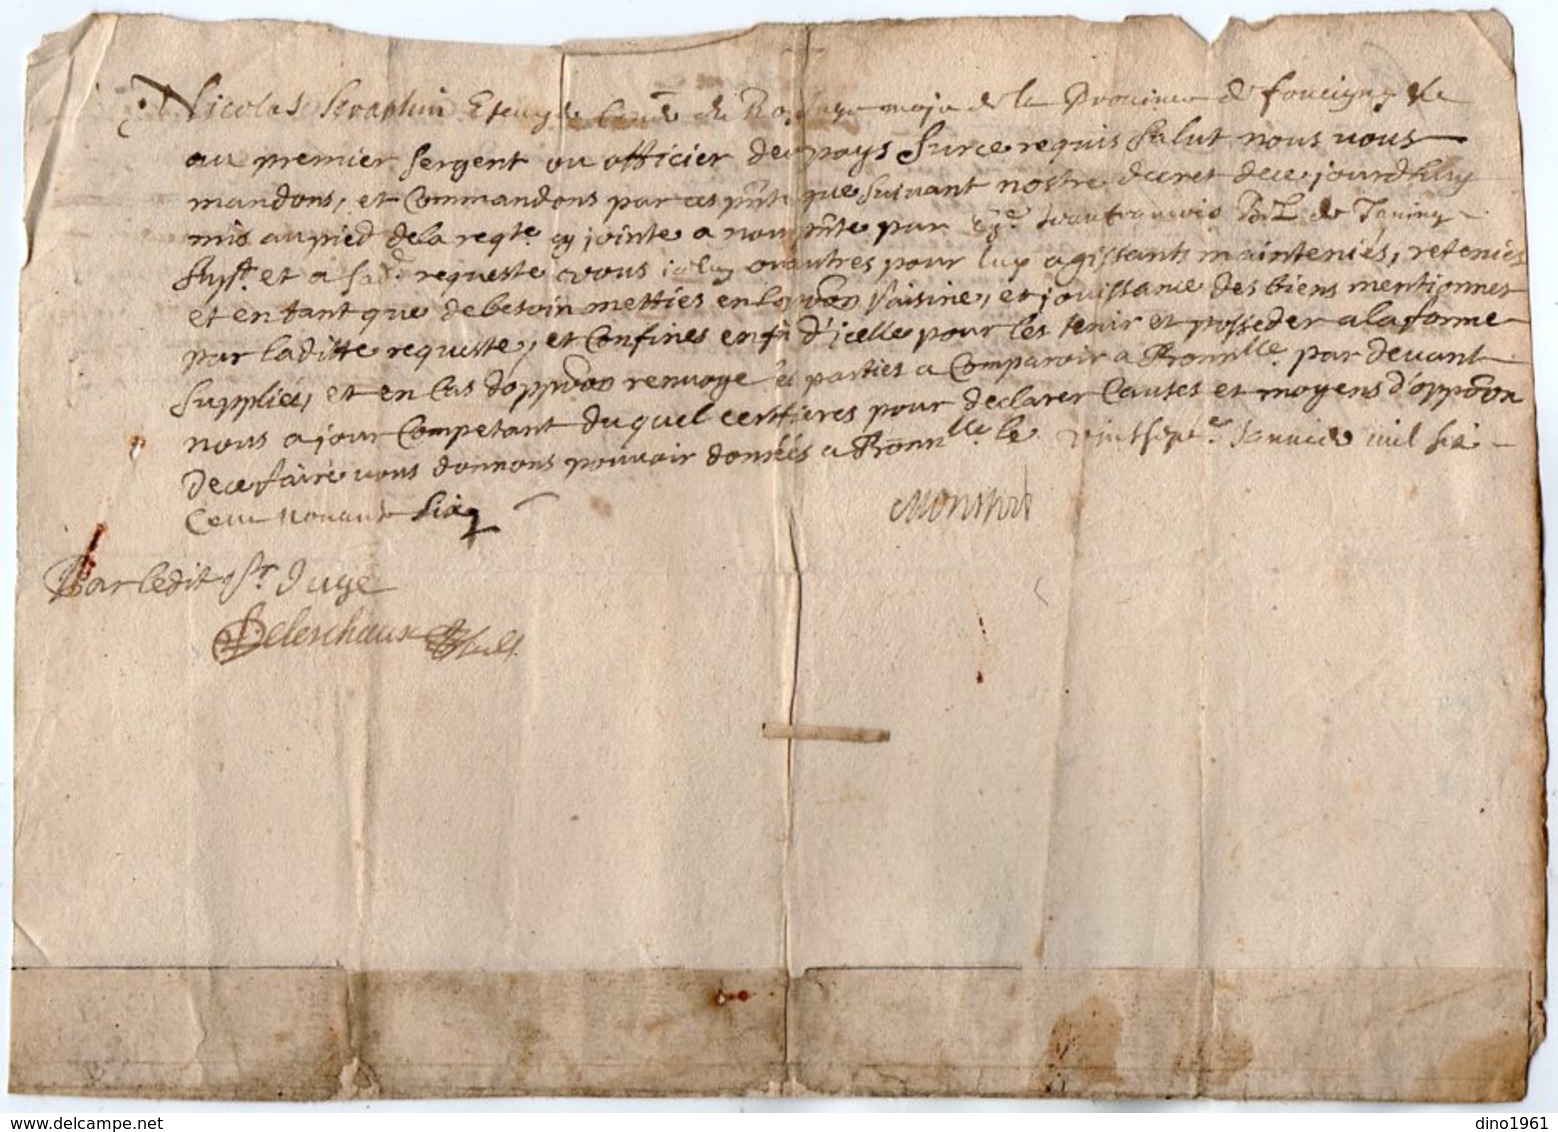 Nicolas Seraphin de la Province de foucigny &c
au premier sergent ou officier de pays surce requis salut nous vous
mandons, et Commandons par ces pntes que suivant nostre decret dece jourdhuy
mis au pied dela reqte cy jointe a nous pnte par de Taning
supt et a sad requeste vous ou autres pour luy agissants mainteniés, reteniés
et en tant que de besoin mettiés en saisine, et jouissance des biens mentionnes
par laditte requeste, et Confines en fin d'icelle pour les tenir et posseder a la forme
suppliée, et en Cas doppoon renvoye les parties a Comparoir a Bonnlle par devant
nous a jour Competant duquel certifieres pour declarer Causes et moyens d'oppoon
Dece faire vous donnons pouvoir données a Bonnlle le vintsept Janvier mil six
Cent nonante six
Par ledit Sr Juge